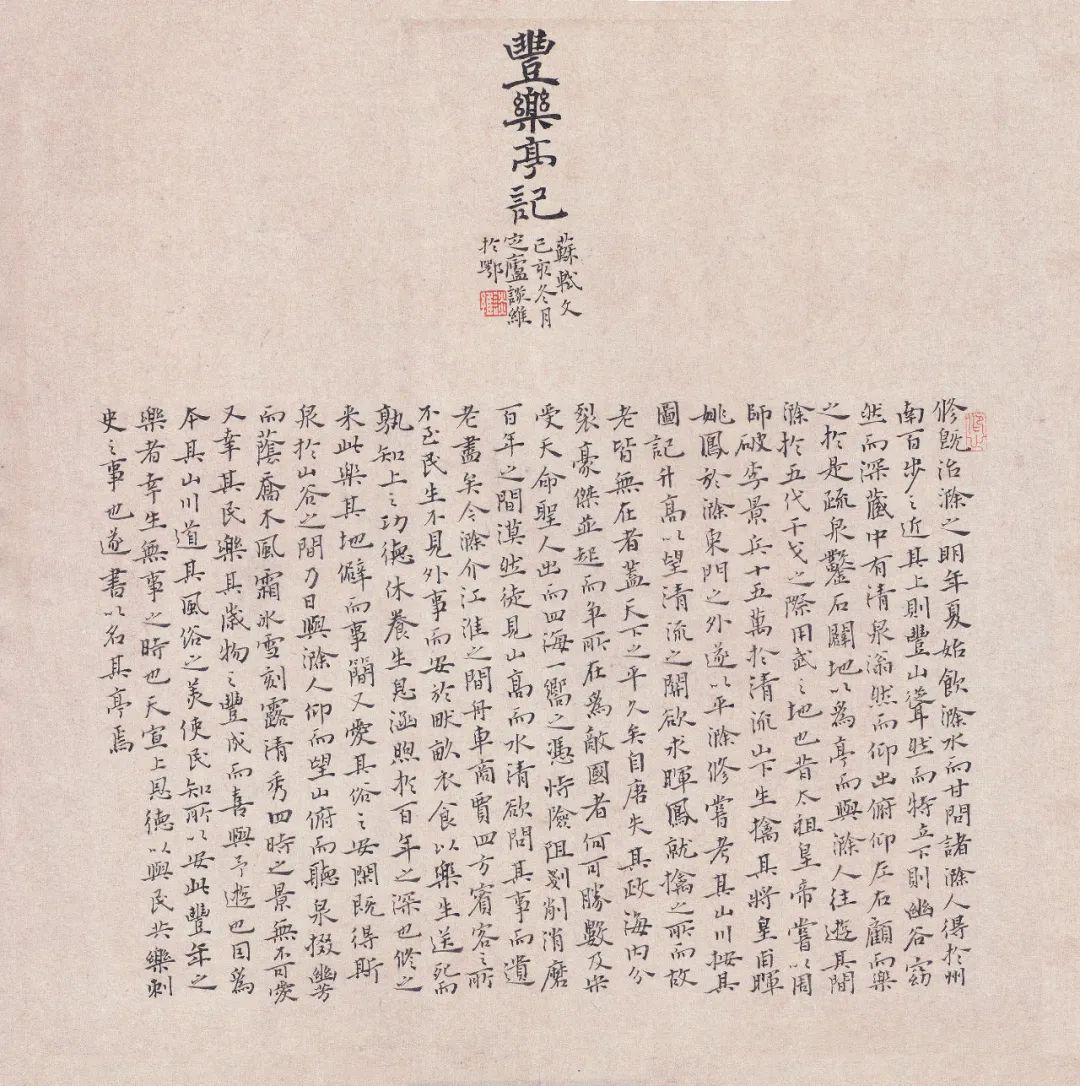 豐樂亭記
蘇軾文
己亥冬月
定廬談維
於鄂
修既治滁之明年夏始飲滁水而甘問諸滁人得於州
南百步之近其上則豐山聳然而特立下則幽谷窈
然而深藏中有清泉滃然而仰出俯仰左右顧而樂
之於是疏泉鑿石闢地以為亭而與滁人往遊其間
滁於五代干戈之際用武之地也昔太祖皇帝嘗以周
師破李景兵十五萬於清流山下生擒其將皇甫暉
姚鳳於滁東門之外遂以平滁修嘗考其山川按其
圖記升高以望清流之關欲求暉鳳就擒之所而故
老皆無在者蓋天下之平久矣自唐失其政海內分
裂豪傑並起而爭所在為敵國者何可勝數及宋
受天命聖人出而四海一嚮之憑恃險阻剗削消磨
百年之間漠然徒見山高而水清欲問其事而遺
老盡矣今滁介江淮之間舟車商賈四方賓客之所
不至民生不見外事而安於畎畝衣食以樂生送死而
孰知上之功德休養生息涵煦於百年之深也修之
來此樂其地僻而事簡又愛其俗之安閑既得斯
泉於山谷之間乃日與滁人仰而望山俯而聽泉掇幽芳
而蔭喬木風霜冰雪刻露清秀四時之景無不可愛
又幸其民樂其歲物之豐成而喜與予遊也因為
本其山川道其風俗之美使民知所以安此豐年之
樂者幸生無事之時也夫宣上恩德以與民共樂刺
史之事也遂書以名其亭焉